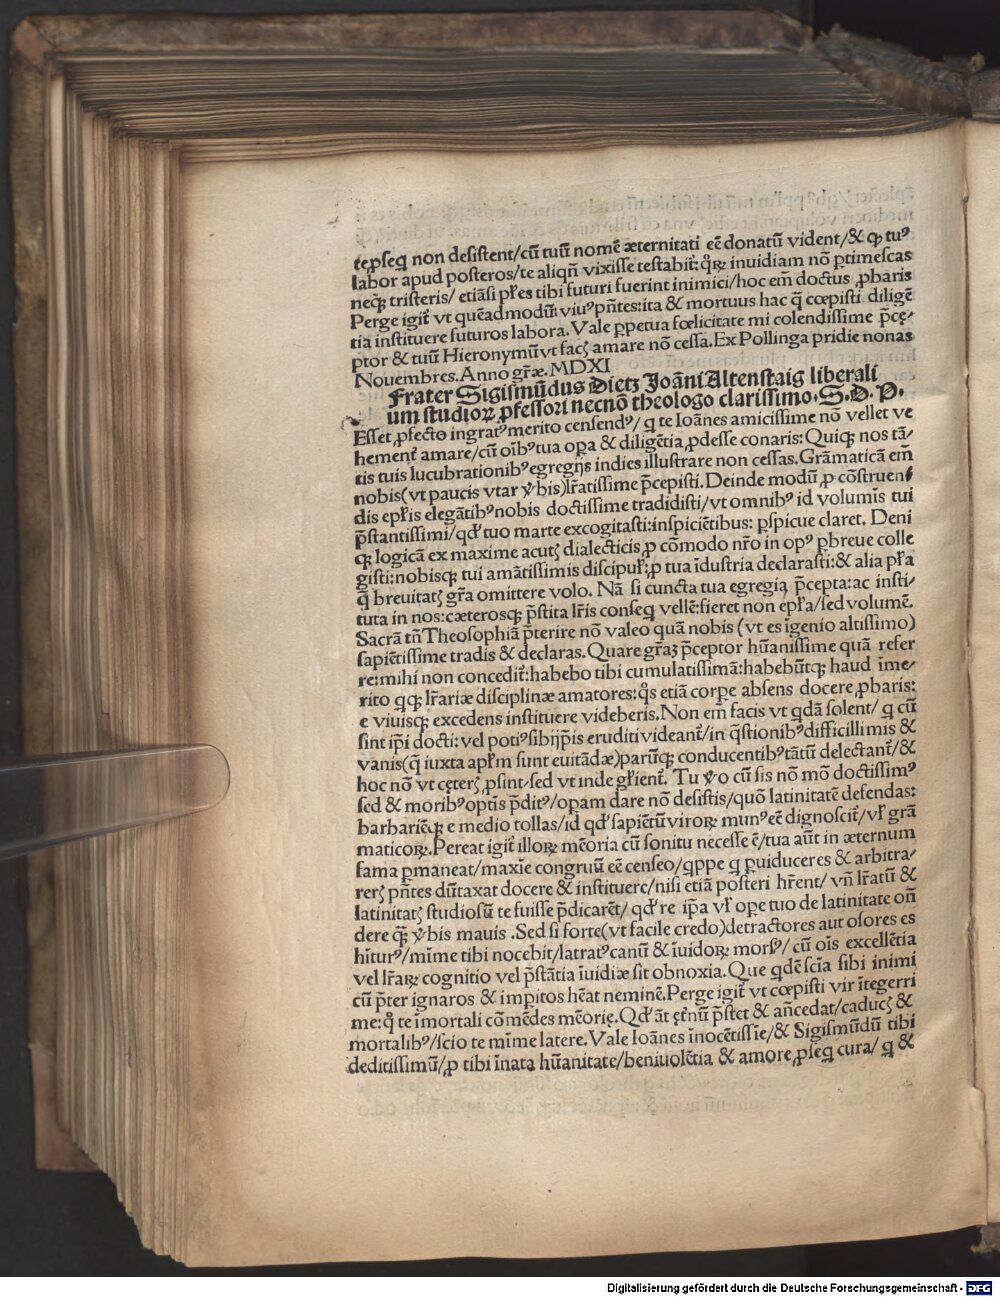 te ꝓseq̃ non desistent/cũ tuũ nomẽ æternitati eẽ donatũ vident/& ꝙ tuꝰ
labor apud posteros/te aliqñ vixisse testabit᷑: q̃ꝛ inuidiam nõ ꝑtimescas
neqꝫ tristeris/ etiãsi pr̃es tibi futuri fuerint inimici/hoc em̃ doctus ꝓbaris
Perge igit᷑ vt quẽadmodũ viuꝰ pñtes: ita & mortuus hac q̃ cœpisti diligẽ
tia instituere futuros labora. Vale ꝑpetua fœlicitate mi colendissime p̃cę⸗
ptor & tuũ Hieronymũ vt facꝭ amare nõ cessa. Ex Pollinga pridie nonas
Nouembres. Anno gr̃æ. MDXI
Frater Sigismũdus Dietz Joãni Altenstaig liberali
um studioꝝ ꝓfessori necnõ theologo clarissimo. S. D. P.
Esset ꝓfecto ingratꝰ merito censendꝰ/ q te Ioãnes amicissime nõ vellet ve
hement᷑ amare/cũ oĩbꝰ tua oꝑa & diligẽtia ꝓdesse conaris: Quiqꝫ nos tã⸗
tis tuis lucubrationibꝰ egregijs indies illustrare non cessas. Grãmaticã em̃
nobis(vt paucis vtar ṽbis)lr̃atissime p̃cepisti. Deinde modũ ꝓ cõstruen⸗
dis epl̃is elegãtibꝰ nobis doctissime tradidisti/vt omnibꝰ id volumĩs tui
p̃stantissimi/qđ tuo marte excogitasti: inspiciẽtibus: ꝑspicue claret. Deni
qꝫ logicã ex maxime acutꝭ dialecticis ꝓ cõmodo nr̃o in opꝰ ꝑbreue colle
gisti: nobisqꝫ tui amãtissimis discipul᷑: ꝓ tua ĩdustria declarasti: & alia pl̃a
q̃ breuitatꝭ gr̃a omittere volo. Nã si cuncta tua egregia p̃cepta: ac insti⸗
tuta in nos: cæterosqꝫ p̃stita lr̃is conseq̃ vellẽ: fieret non epl̃a/sed volumẽ.
Sacrã tñ Theosophiã p̃terire nõ valeo quã nobis (vt es ĩgenio altissimo)
sapiẽtissime tradis & declaras. Quare gr̃aꝫ p̃ceptor hũanissime quã refer
re: mihi non concedit᷑: habebo tibi cumulatissimã: habebũtqꝫ haud ĩme⸗
rito qqꝫ lr̃ariæ disciplinæ amatores: q̃s etiã corꝑe absens docere ꝓbaris:
e viuisqꝫ excedens instituere videberis. Non em̃ facis vt qdã solent/ q cũ
sint ip̃i docti: vel potiꝰ sibijp̃is eruditi videant᷑/in q̃stionibꝰ difficillimis &
vanis(q̃ iuxta apl̃m sunt euitãdæ)parũqꝫ conducentibꝰ tãtũ delectant᷑/&
hoc nõ vt cęterꝭ ꝓsint/sed vt inde gl̃ient᷑. Tu ṽo cũ sis nõ mõ doctissimꝰ
sed & moribꝰ optĩs p̃ditꝰ/opam dare nõ desistis/quõ latinitatẽ defendas:
barbariẽqꝫ e medio tollas/id qđ sapiẽtũ viroꝝ munꝰ eẽ dignoscit᷑/vl̃ grã
maticoꝝ. Pereat igit᷑ illoꝝ mẽoria cũ sonitu necesse ẽ/tua aũt in æternum
fama ꝑmaneat/maxĩe congruũ eẽ censeo/qppe q ꝑuiduceres & arbitra⸗
rerꝭ pñtes dũtaxat docere & instituere/nisi etiã posteri hr̃ent/ vñ lr̃atũ &
latinitatꝭ studiosũ te fuisse p̃dicarẽt/ qđ re ip̃a vl̃ oꝑe tuo de latinitate oñ
dere qꝫ̃ ṽbis mauis. Sed si forte(vt facile credo)detractores aut osores es
hĩturꝰ/mĩme tibi nocebit/latratꝰ canũ & ĩuidoꝝ morsꝰ/ cũ oĩs excellẽtia
vel lr̃aꝝ cognitio vel p̃stãtia ĩuidiæ sit obnoxia. Que qdẽ scĩa sibi inimi
cũ p̃ter ignaros & imꝑitos hẽat neminẽ. Perge igit᷑ vt cœpisti vir ĩtegerri
me: q̃ te ĩmortali cõmẽdes mẽorię. Qđ ãt ęt̃nũ p̃stet & añcedat/caducꝭ &
mortalibꝰ/scio te mĩme latere. Vale Ioãnes ĩnocẽtissĩe/& Sigismũdũ tibi
deditissimũ/ꝓ tibi ĩnata hũanitate/beniuolẽtia & amore ꝓseq̃ cura/ q̃ &
Digitalisierung gefördert durch die Deutsche Forschungsgemeinschaft - DFG